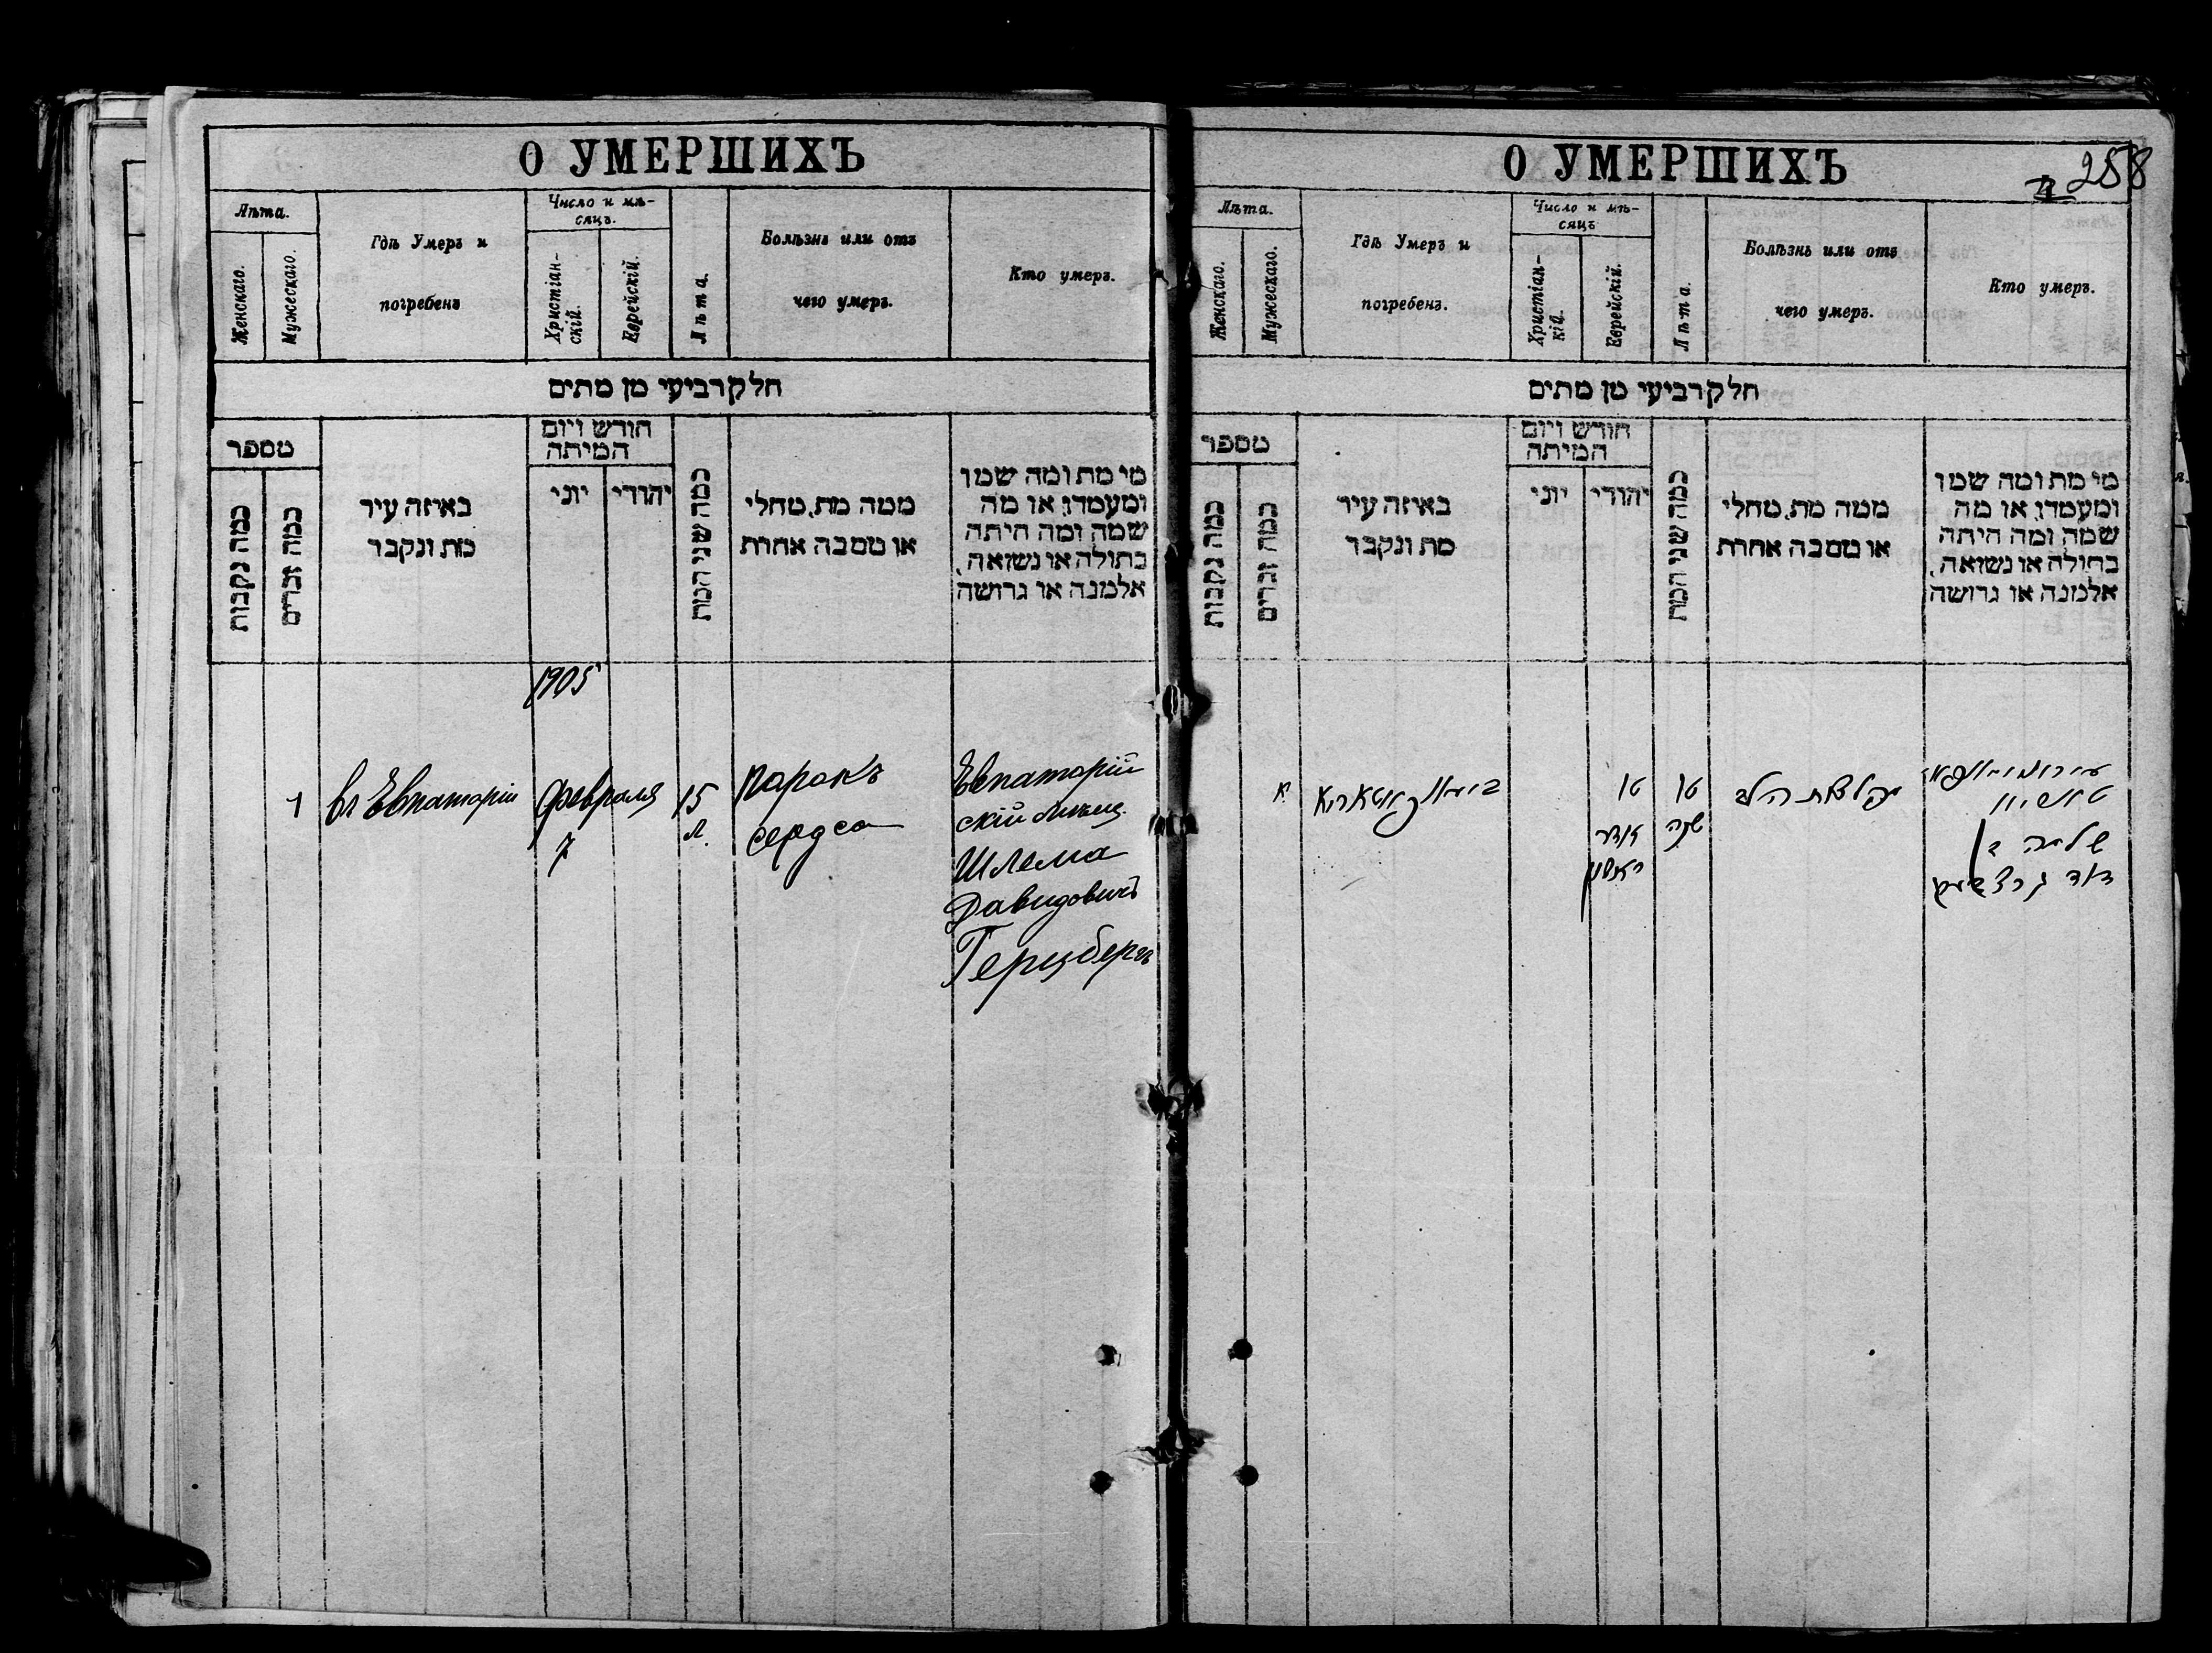 О УМЕРШИХЪ
Лѣта.
Женскаго.
Мужескаго.
Гдѣ Умеръ и
погребенъ
Число и мѣ-
сяцъ.
Христіан-
скій.
Еврейскій.
Лѣта.
Болѣзнь или отъ
чего умеръ.
Кто умеръ.
חלק רביעי מן מתים
מספר
כמה נקבות
כמה זכרים
באיזה עיר
מת ונקבר
חודש ויום
המיתה
יוני
יהודי
כמה שני המת
ממה מת, מחלי
או מסבה אחרת
מי מת ומה שמו
ומעמדו, או מה
שמה ומה היתה
בתולה או נשואה,
אלמנה או גרושה
1905
1
въ Евпаторіи
февраля
7
15
л.
порокъ
сердса
Евпаторій
скій
Шлема
Давидовичъ
Герцбергъ
О УМЕРШИХЪ
258
Лѣта.
Женскаго.
Мужескаго.
Гдѣ Умеръ и
погребенъ.
Число и мѣ-
сяцъ
Христіан-
кій.
Еврейскій.
Лѣта.
Болѣзнь или отъ
чего умеръ.
Кто умеръ.
חלק רביעי מן מתים
מספר
כמה נקבות
כמה זכרים
באיזה עיר
מת ונקבר
חודש ויום
המיתה
יוני
יהודי
כמה שני המת
ממה מת, מחלי
או מסבה אחרת
מי מת ומה שמו
ומעמדו, או מה
שמה ומה היתה
בתולה או נשואה,
אלמנה או גרושה
א
טו
אדר
ראשון
טו
שנה
הלב
שלמה ב
דוד הרצבערג